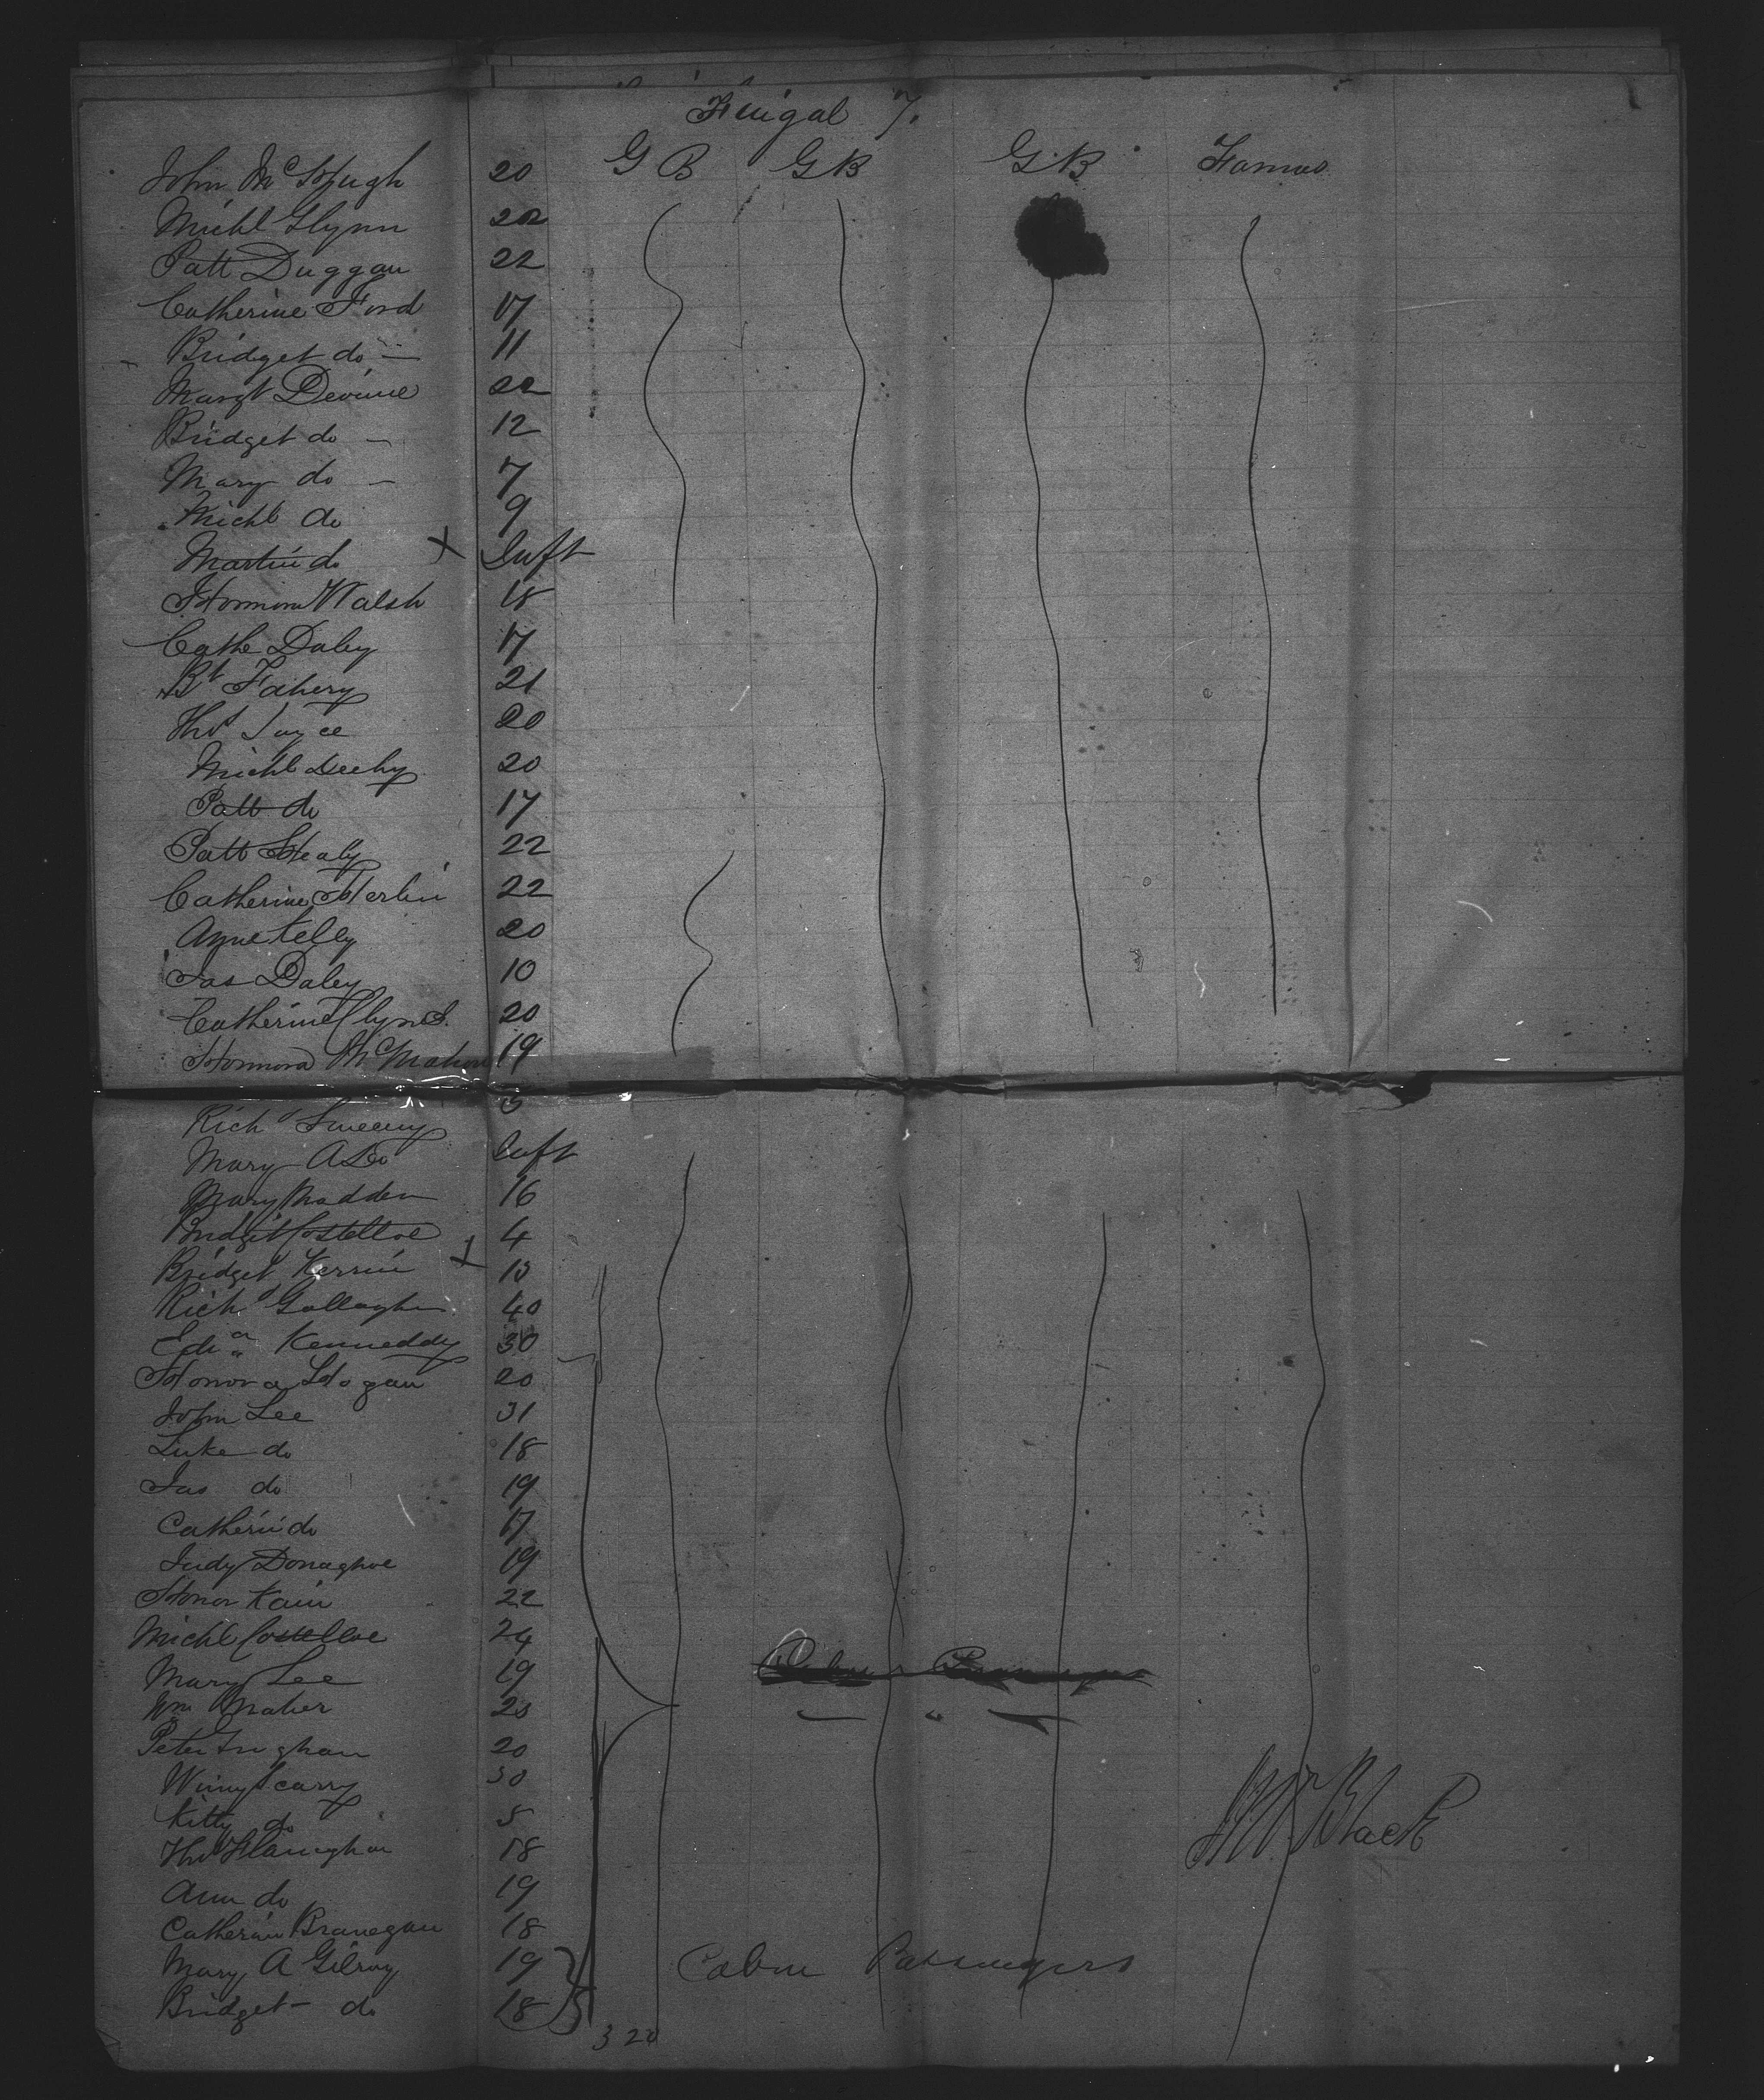 Fingal 7.
G B G B G B Farmers
John McHugh 20
Michl Glynn 22
Patt Duggan 22
Catherine Ford 17
Bridget do 11
Margt Devine 22
Bridget do 12
Mary do 7
Michl do 9
Martin do X Inft
Honnora Walsh 18
Cathe Daley 17
Bt Fahery 21
Thos Joyce 20
Michl Leehy 20
Patt do 17
Patt Healy 22
Catherine 22
Anne Kelly 20
Jas Daley 10
Catherine Clynes 20
Honnora McMahon 19
Richd Sweeny
Mary A Do Inft
Mary Madden 16
Bridgit Costelloe 4
Bridget Kerrin 13
Richd Gallagher 40
Kenneddy 30
Honora Hogan 20
John Lee 31
Luke do 18
Jas do 19
Catherin do 17
Judy Donaghoe 19
Honor Kain 22
Michl Costelloe 24
Mary Lee 19
Wm Maher 20
Peter 20
Winny Scarry 30
Kitty do 5
Thos Flanaghan 18
Ann do 19
Catherin Branegan 18
Mary A Gilroy 19
Bridget do 18
320
Cabin Passengers
Black